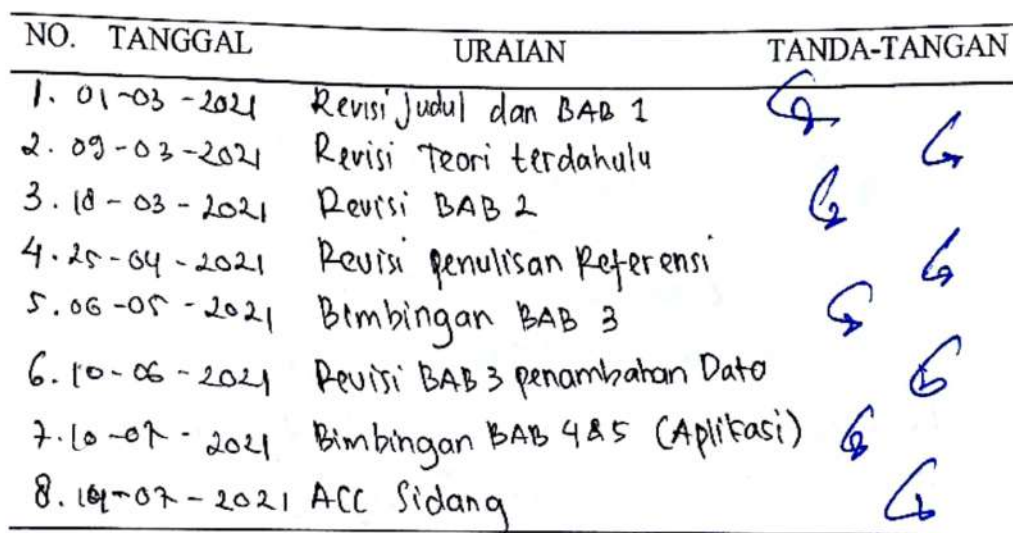 NO. TANGGAL URAIAN TANDA-TANGAN
1. 01-03-2021 Revisi Judul dan BAB 1
2. 09-03-2021 Revisi Teori terdahulu
3. 18-03-2021 Revisi BAB 2
4. 25-04-2021 Revisi penulisan Referensi
5. 06-05-2021 Bimbingan BAB 3
6. 10-06-2021 Revisi BAB 3 penambahan Data
7. 10-07-2021 Bimbingan BAB 4&5 (Aplikasi)
8. -07-2021 ACC Sidang